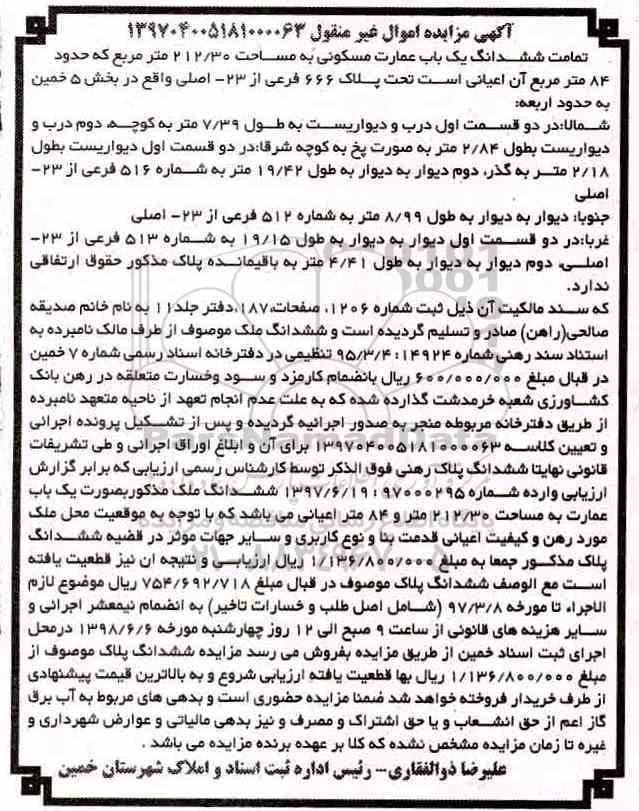 آگهی مزایده اموال غیر منقول ۱۳۹۷۰۴۰۰۵۱۸۱۰۰۰۰۶۳
تمامت ششدانگ یک باب عمارت مسکونی به مساحت ۲۱۲/۳۰ متر مربع که حدود
۸۴ متر مربع آن اعیانی است تحت پلاک ۶۶۶ فرعی از ۲۳- اصلی واقع در بخش ۵ خمین
به حدود اربعه:
شمالا:در دو قسمت اول درب و دیواریست به طول ۷/۳۹ متر به کوچه، دوم درب و
دیواریست بطول ۲/۸۴ متر به صورت پخ به کوچه شرقا:در دو قسمت اول دیواریست بطول
۲/۱۸ متر به گذر، دوم دیوار به دیوار به طول ۱۹/۴۲ متر به شماره ۵۱۶ فرعی از ۲۳-
اصلی
جنوبا: دیوار به دیوار به طول ۸/۹۹ متر به شماره ۵۱۲ فرعی از ۲۳- اصلی
غربا:در دو قسمت اول دیوار به دیوار به طول ۱۹/۱۵ به شماره ۵۱۳ فرعی از ۲۳-
اصلی، دوم دیوار به دیوار به طول ۴/۴۱ متر به باقیمانده پلاک مذکور حقوق ارتفاقی
ندارد.
که سند مالکیت آن ذیل ثبت شماره ۱۲۰۶، صفحات،۱۸۷،دفتر جلد۱۱ به نام خانم صدیقه
صالحی(راهن) صادر و تسلیم گردیده است و ششدانگ ملک موصوف از طرف مالک نامبرده به
استناد سند رهنی شماره ۱۴۹۲۴: ۹۵/۳/۴ تنظیمی در دفترخانه اسناد رسمی شماره ۷ خمین
در قبال مبلغ ۶۰۰/۰۰۰/۰۰۰ ریال بانضمام کارمزد و سود وخسارت متعلقه در رهن بانک
کشاورزی شعبه خرمدشت گذارده شده که به علت عدم انجام تعهد از ناحیه متعهد نامبرده
از طریق دفترخانه مربوطه منجر به صدور اجرائیه گردیده و پس از تشکیل پرونده اجرائی
و تعیین کلاسه ۱۳۹۷۰۴۰۰۵۱۸۱۰۰۰۰۶۳ برای آن و ابلاغ اوراق اجرائی و طی تشریفات
قانونی نهایتا ششدانگ پلاک رهنی فوق الذکر توسط کارشناس رسمی ارزیابی که برابر گزارش
ارزیابی وارده شماره ۹۷۰۰۰۲۹۵ : ۱۳۹۷/۶/۱۹ ششدانگ ملک مذکوربصورت یک باب
عمارت به مساحت ۲۱۲/۳۰ متر و ۸۴ متر اعیانی می باشد که با توجه به موقعیت محل ملک
مورد رهن و کیفیت اعیانی قدمت بنا و نوع کاربری و سایر جهات موثر در قضیه ششدانگ
پلاک مذکور جمعا به مبلغ ۱/۱۳۶/۸۰۰/۰۰۰ ریال ارزیابی و نتیجه ان نیز قطعیت یافته
است مع الوصف ششدانگ پلاک موصوف در قبال مبلغ ۷۵۴/۶۹۲/۷۱۸ ریال موضوع لازم
الاجراء تا مورخه ۹۷/۳/۸ (شامل اصل طلب و خسارات تاخیر) به انضمام نیمعشر اجرائی و
سایر هزینه های قانونی از ساعت ۹ صبح الی ۱۲ روز چهارشنبه مورخه ۱۳۹۸/۶/۶ درمحل
اجرای ثبت اسناد خمین از طریق مزایده بفروش می رسد مزایده ششدانگ پلاک موصوف از
مبلغ ۱/۱۳۶/۸۰۰/۰۰۰ ریال بها قطعیت یافته ارزیابی شروع و به بالاترین قیمت پیشنهادی
از طرف خریدار فروخته خواهد شد ضمنا مزایده حضوری است و بدهی های مربوط به آب برق
گاز اعم از حق انشعاب و یا حق اشتراک و مصرف و نیز بدهی مالیاتی و عوارض شهرداری و
غیره تا زمان مزایده مشخص نشده که کلا بر عهده برنده مزایده می باشد .
علیرضا ذوالفقاری -- رئیس اداره ثبت اسناد و املاک شهرستان خمین